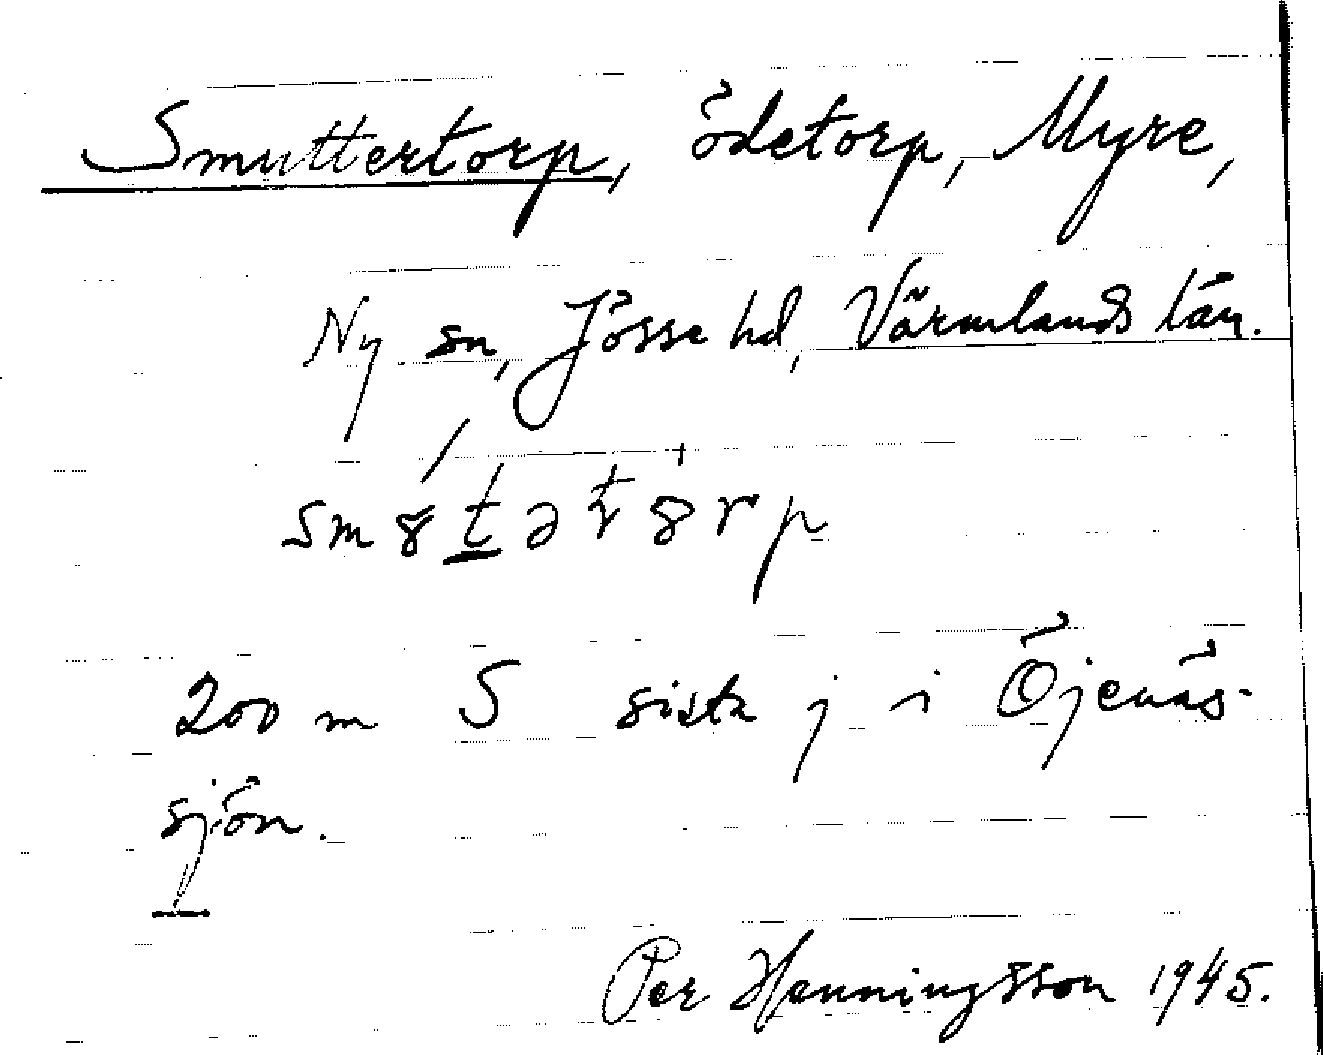 Smuttertorp, ödetorp, Myre,
Ny sn, Jösse hd, Värmlands län.
200 m S sista j i Öjenäs-
sjön.
Per Henningsson 1945.